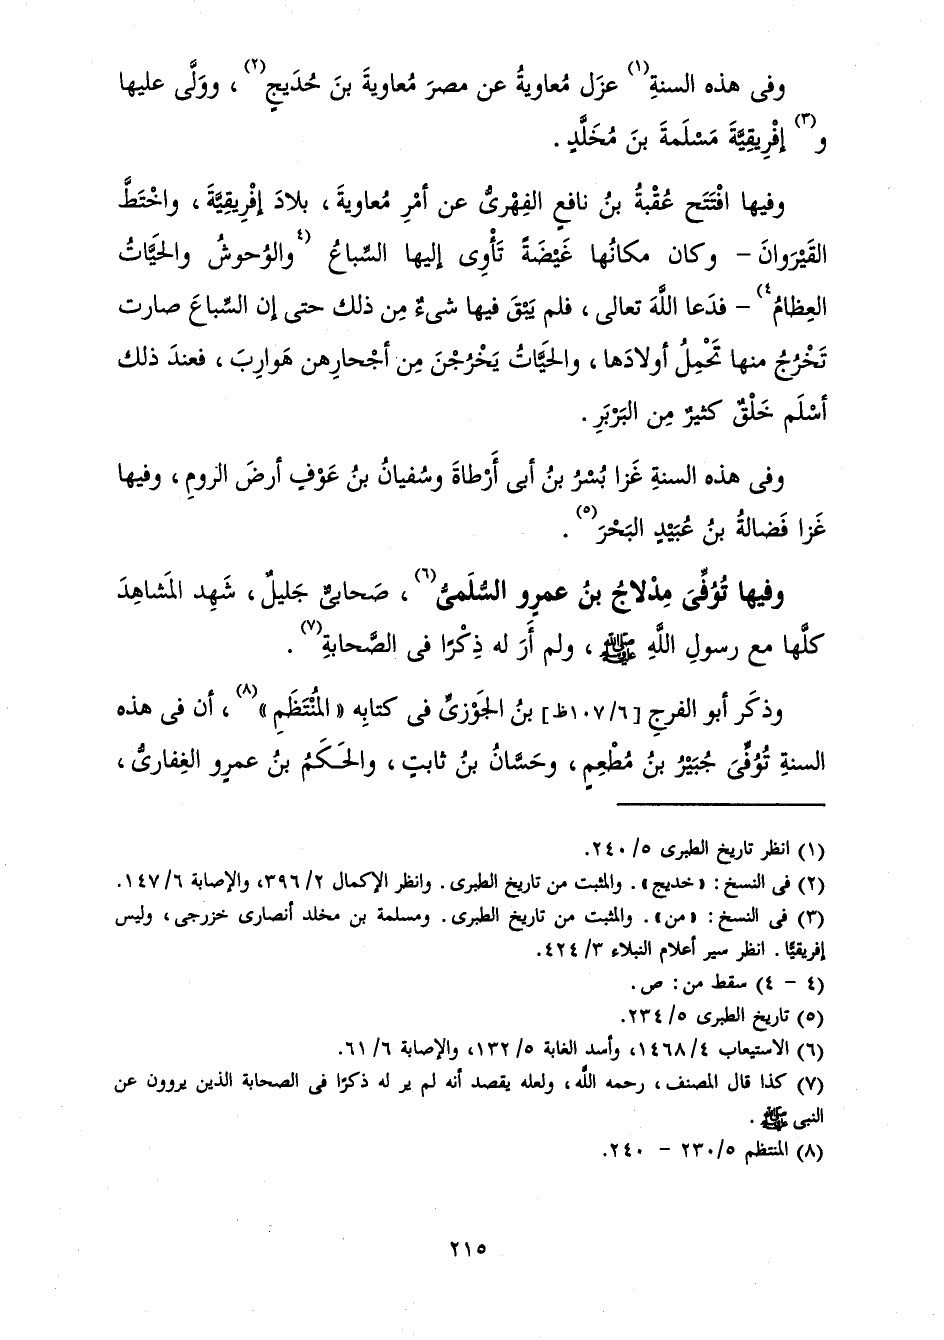 وفى هذه السنةِ(١) عزَل مُعاويةُ عن مصرَ مُعاويةَ بنَ حُدَيجٍ(٢) ، وولَّى عليها
و(٣) إفْرِيقِيَّةَ مَسْلَمةَ بنَ مُخَلَّدٍ .
وفيها افْتَتَح عُقْبةُ بنُ نافعٍ الفِهْرىُّ عن أمْرِ مُعاويةَ ، بلادَ إفْرِيقِيَّةَ ، واخْتَطَّ
القَيْرَوانَ – وكان مكانُها غَيْضَةً تَأْوِى إليها السِّباعُ (٤والوُحوشُ والحَيَّاتُ
العِظامُ٤) – فدَعا اللَّهَ تعالى ، فلم يَبْقَ فيها شىءٌ مِن ذلك حتى إن السِّباعَ صارت
تَخْرُجُ منها تَحْمِلُ أولادَها ، والحَيَّاتُ يَخْرُجْنَ مِن أجْحارِهن هَوارِبَ ، فعندَ ذلك
أسْلَم خَلْقٌ كثيرٌ مِن البَرْبَرِ .
وفى هذه السنةِ غَزا بُسْرُ بنُ أبى أَرْطاةَ وسُفيانُ بنُ عَوْفٍ أرضَ الرومِ ، وفيها
غَزا فَضالةُ بنُ عُبَيْدٍ البَحْرَ(٥) .
وفيها تُوُفِّىَ مِدْلاجُ بنُ عمرٍو السُّلَمىُّ(٦) ، صَحابىٌّ جَليلٌ ، شَهِد المَشاهِدَ
كلَّها مع رسولِ اللَّهِ ﷺ ، ولم أَرَ له ذِكْرًا فى الصَّحابةِ(٧) .
وذكَر أبو الفرجِ [١٠٧/٦ظ] بنُ الجَوْزىِّ فى كتابِه «المُنْتَظَمِ»(٨) ، أن فى هذه
السنةِ تُوُفِّىَ جُبَيْرُ بنُ مُطْعِمٍ ، وحَسَّانُ بنُ ثابتٍ ، والحَكَمُ بنُ عمرٍو الغِفارىُّ ،
(١) انظر تاريخ الطبرى ٥/ ٢٤٠.
(٢) فى النسخ : «خديج» . والمثبت من تاريخ الطبرى . وانظر الإكمال ٢/ ٣٩٦، والإصابة ٦/ ١٤٧.
(٣) فى النسخ : «من» . والمثبت من تاريخ الطبرى . ومسلمة بن مخلد أنصارى خزرجى ، وليس
إفريقيًّا . انظر سير أعلام النبلاء ٣/ ٤٢٤.
(٤ – ٤) سقط من : ص .
(٥) تاريخ الطبرى ٥/ ٢٣٤.
(٦) الاستيعاب ٤/ ١٤٦٨، وأسد الغابة ٥/ ١٣٢، والإصابة ٦/ ٦١.
(٧) كذا قال المصنف ، رحمه اللَّه ، ولعله يقصد أنه لم ير له ذكرًا فى الصحابة الذين يروون عن
النبى ﷺ .
(٨) المنتظم ٥/ ٢٣٠ – ٢٤٠.
٢١٥